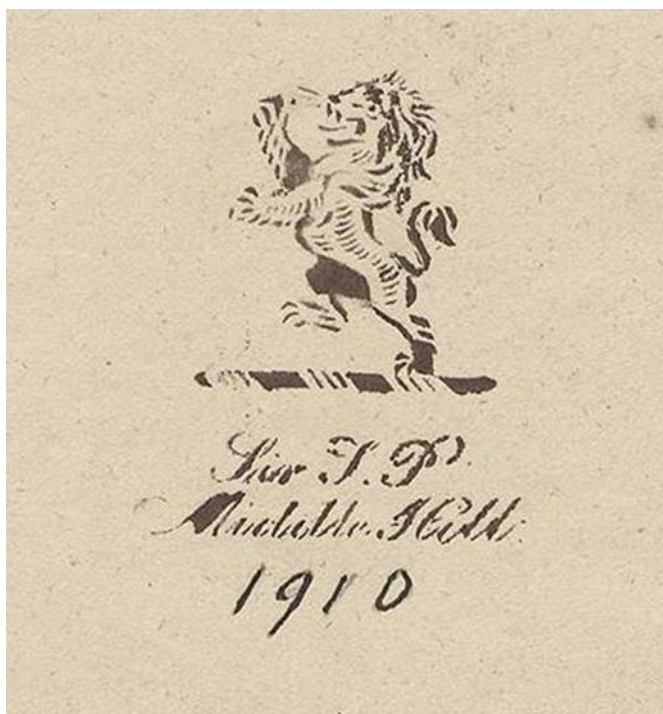 Sir T. P.
Middle Hill
1910